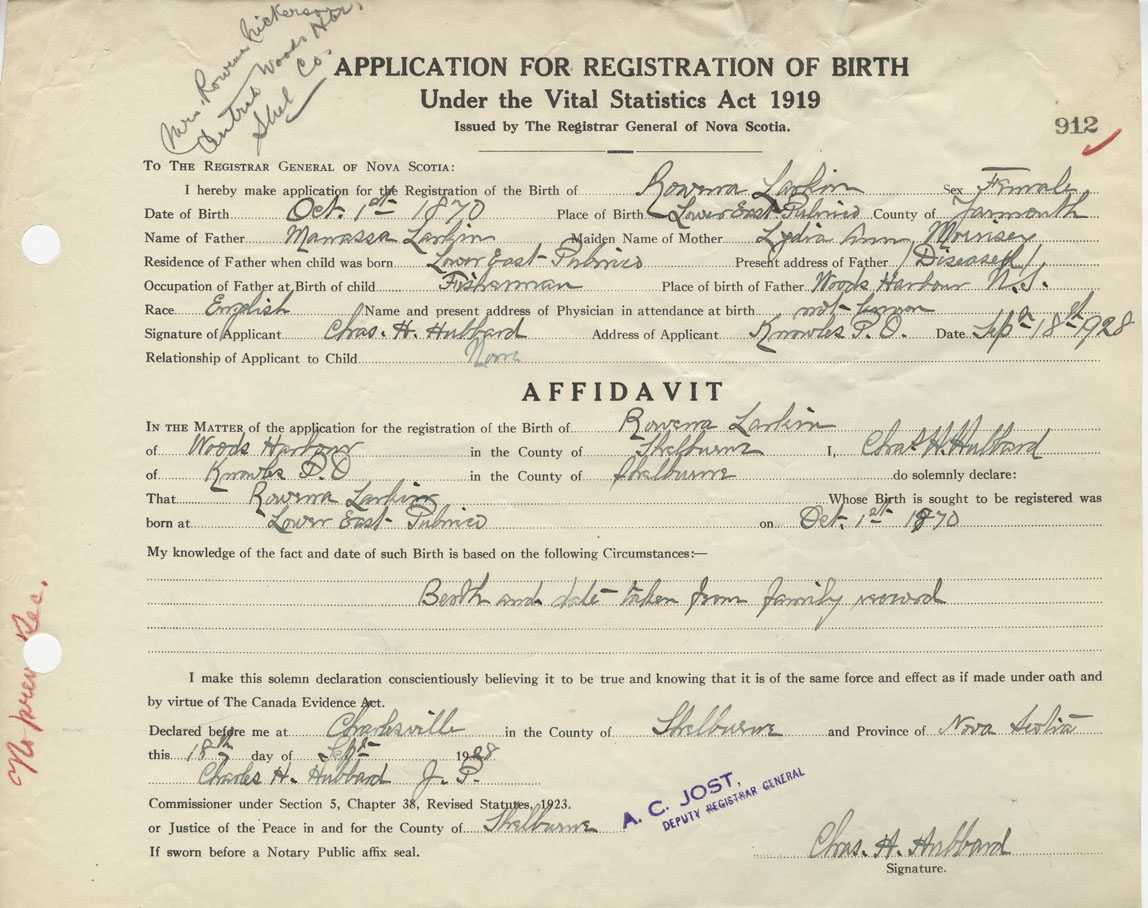 Mrs. Rowena Nickerson
Central Woods Har.
Shel Co.
APPLICATION FOR REGISTRATION OF BIRTH
Under the Vital Statistics Act 1919
Issued by The Registrar General of Nova Scotia.
912
To The Registrar General of Nova Scotia:
I hereby make application for the Registration of the Birth of Rowena Larkin Sex Female
Date of Birth Oct. 1st 1870 Place of Birth Lower East Pubnico County of Yarmouth
Name of Father Manassa Larkin Maiden Name of Mother Lydia Ann Morrisey
Residence of Father when child was born Lower East Pubnico Present address of Father (Diseased)
Occupation of Father at Birth of child Fisherman Place of birth of Father Woods Harbour N.S.
Race English Name and present address of Physician in attendance at birth not known
Signature of Applicant Chas. H. Hubbard Address of Applicant Knowles P.O. Date Sep 18th 1928
Relationship of Applicant to Child None
AFFIDAVIT
In the Matter of the application for the registration of the Birth of Rowena Larkin
of Woods Harbour in the County of Shelburne I, Chas. H. Hubbard
of Knowles P.O in the County of Shelburne do solemnly declare:
That Rowena Larkin Whose Birth is sought to be registered was
born at Lower East Pubnico on Oct. 1st 1870
My knowledge of the fact and date of such Birth is based on the following Circumstances:—
Berth and date taken from family record
I make this solemn declaration conscientiously believing it to be true and knowing that it is of the same force and effect as if made under oath and
by virtue of The Canada Evidence Act.
Declared before me at Charlesville in the County of Shelburne and Province of Nova Scotia
this 18th day of Sept 1928
Charles H. Hubbard J. P.
Commissioner under Section 5, Chapter 38, Revised Statutes, 1923.
or Justice of the Peace in and for the County of Shelburne
If sworn before a Notary Public affix seal.
A. C. JOST,
DEPUTY REGISTRAR GENERAL
Chas. H. Hubbard
Signature.
No prev Rec.